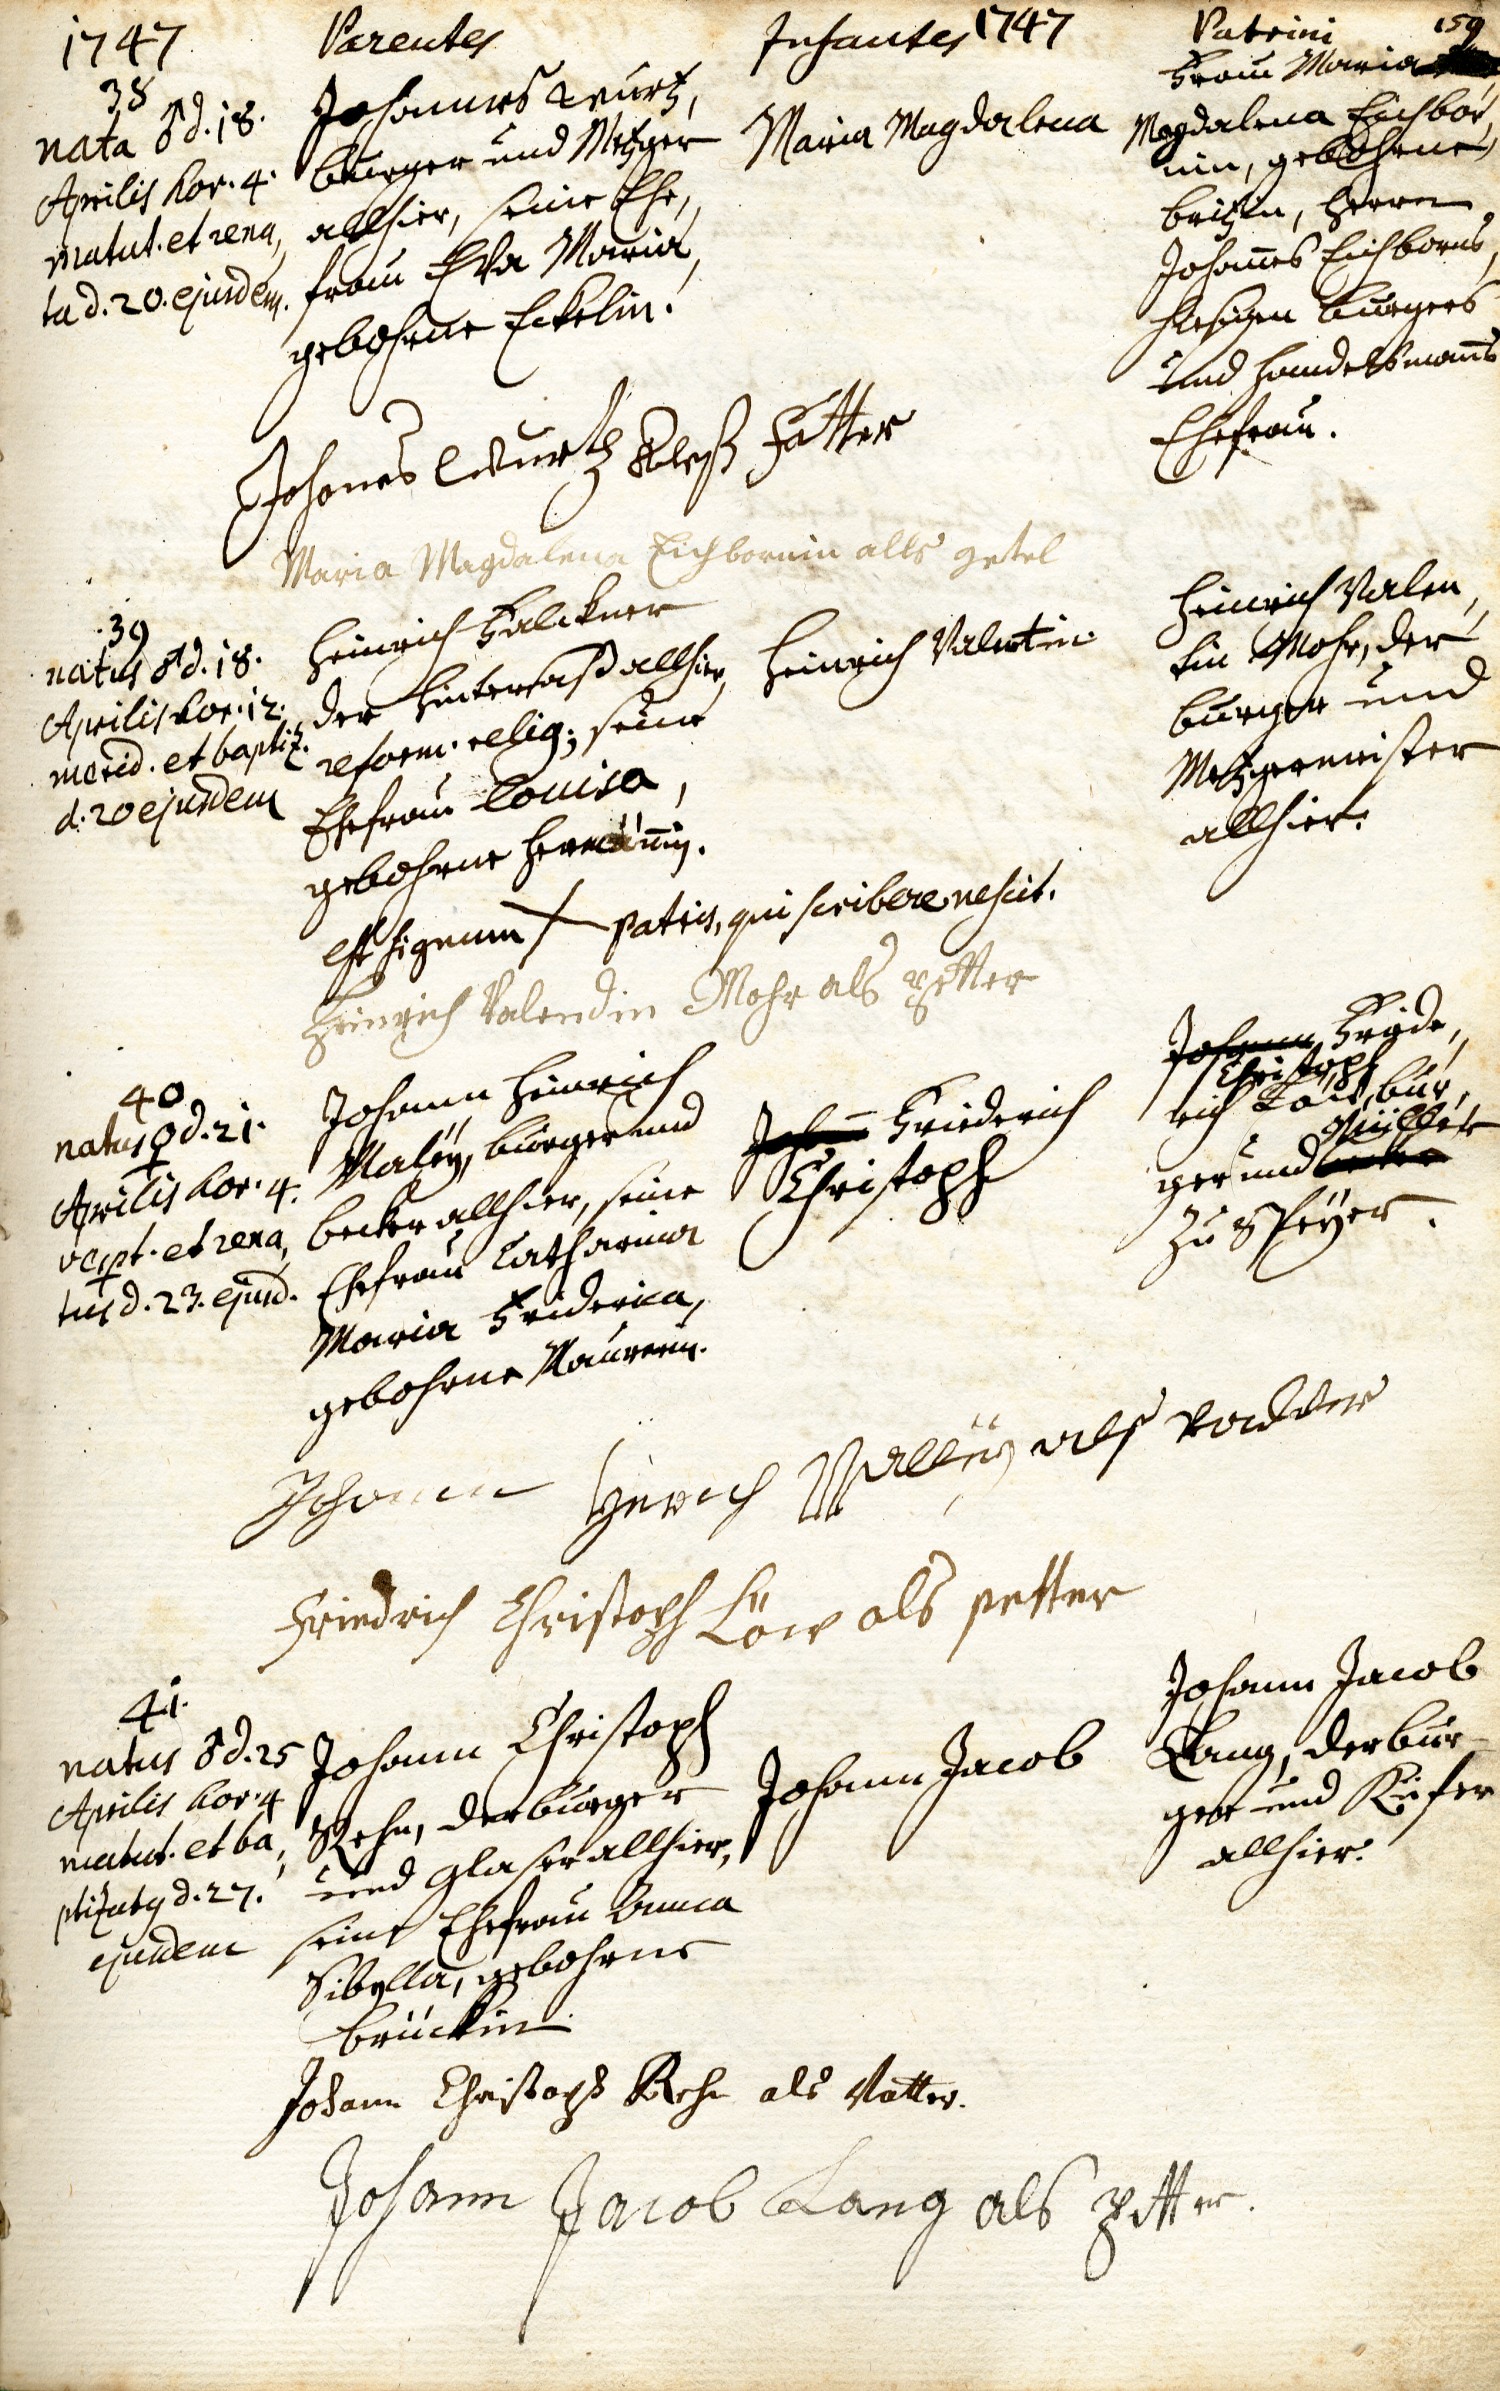 1747 Parentes Infantes 1747 Patrini 159
38
nata ♂ d. 18.
Aprilis hor. 4.
matut. et rena,
ta d. 20. ejusdem.
Johannes Wurtz,
burger und Metzger
allhier, seine Ehe,
frau Eva Maria,
gebohrne Eckelin.
Maria Magdalena
Frau Maria
Magdalena Eichbor,
nin, gebohrne
britzin, Herrn
Johañes Eichborns,
hiesigen burgers
und handelsmañs
Ehefrau.
Johanes Wurtz alß Fatter
Maria Magdalena Eichbornin alls getel
39
natus ♂ d. 18.
Aprilis hor. 12.
merid. et baptiz.
d. 20 ejusdem
Heinrich Falckner
der hintersaß allhier,
reform. relig; seine
Ehefrau Louisa,
gebohrne
Heinrich Valentin
Heinrich Valen,
tin Mohr, der
burger und
Metzgermeister
allhier.
est signum X patris, qui scribere nescit.
Heinrich Valendin Mohr als petter
40
natus ♀ d. 21.
Aprilis hor. 4.
vespt. et rena,
tus d. 23. ejusd.
Johann Heinrich
Maleÿ, burger und
becker allhier, seine
Ehefrau Catharina
Maria Friderica,
gebohrne Maurerin.
Johann Friederich
Christoph
Johann Fride,
Christoph
rich Löw, bur,
Müller
ger und
zu Speÿer.
Johann Henrich Malleÿ als vadder
Friedrich Christoph Löw als petter
41.
natus ♂ d. 25
Aprilis hor. 4
matut. et ba,
ptizatus d. 27.
ejusdem
Johann Christoph
Rehn, der burger
und glaser allhier,
seine Ehefrau Anna
Sibylla, gebohrne
brückin
Johann Jacob
Johann Jacob
Lang, der bur-
ger und Küfer
allhier.
Johann Christoph Rehn als Vatter.
Johann Jacob Lang als petter.